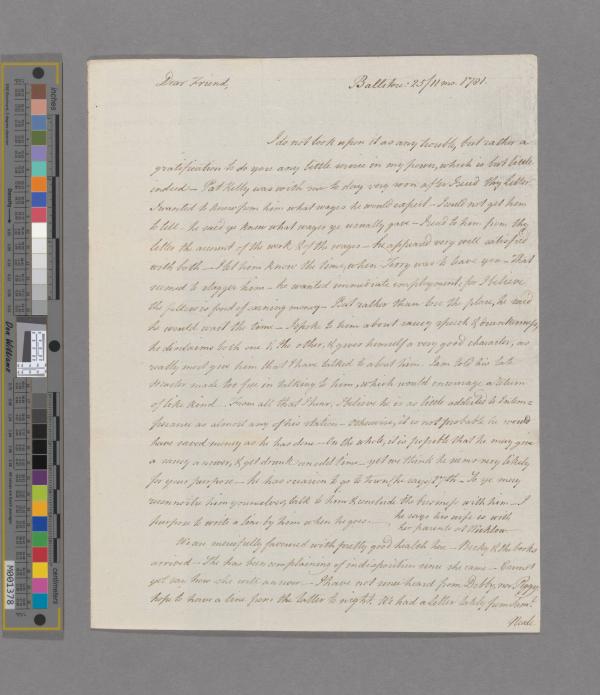 Dear Friend,
Ballitore: 25/11 mo. 1781.
I do not look upon it as any trouble, but rather a
gratification to do you any little service in my power, which is but little
indeed – Pat Kelly was with me to day very soon after I rec'd thy letter
I wanted to know from him what wages he would expect – I could not get him
to tell – he said ye knew what wages ye usually gave – I read to him from thy
letter the account of the work & of the wages – he appeared very well satisfied
with both – I let him know the time, when Terry was to leave you – That
seemed to stagger him – he wanted immediate employment, for I believe
the fellow is fond of earning money – But rather than lose the place, he said
he would wait the time – I spoke to him about saucy speech & drunkenness,
he disclaims both one & the other, & gives himself a very good character, as
really most give him that I have talked to about him. I am told his late
Master made too free in talking to him, which would encourage a return
of like kind. From all that I hear, I believe he is as little addicted to Intem=
perance as almost any of his station – otherwise, it is not probable he would
have saved money as he has done – On the whole, it is possible that he may give
a saucy answer, & get drunk an odd time – yet we think he seems very likely
for your purpose – he has occasion to go to town, he says, 17th – So ye may
yourselves, talk to him & conclude the business with him – I
purpose to write a line by him when he goes – he says his wife is with
her parents at Wicklow
We are mercifully favoured with pretty good health here – Becky & the books
arrived – She has been complaining of indisposition since she came – Cannot
yet say how she will answer – I have not since heard from Debby, nor Peggy
hope to have a line from the latter to night. We had a letter lately from Saml.
Neale
inches
centimeters
Don Williams
M001378